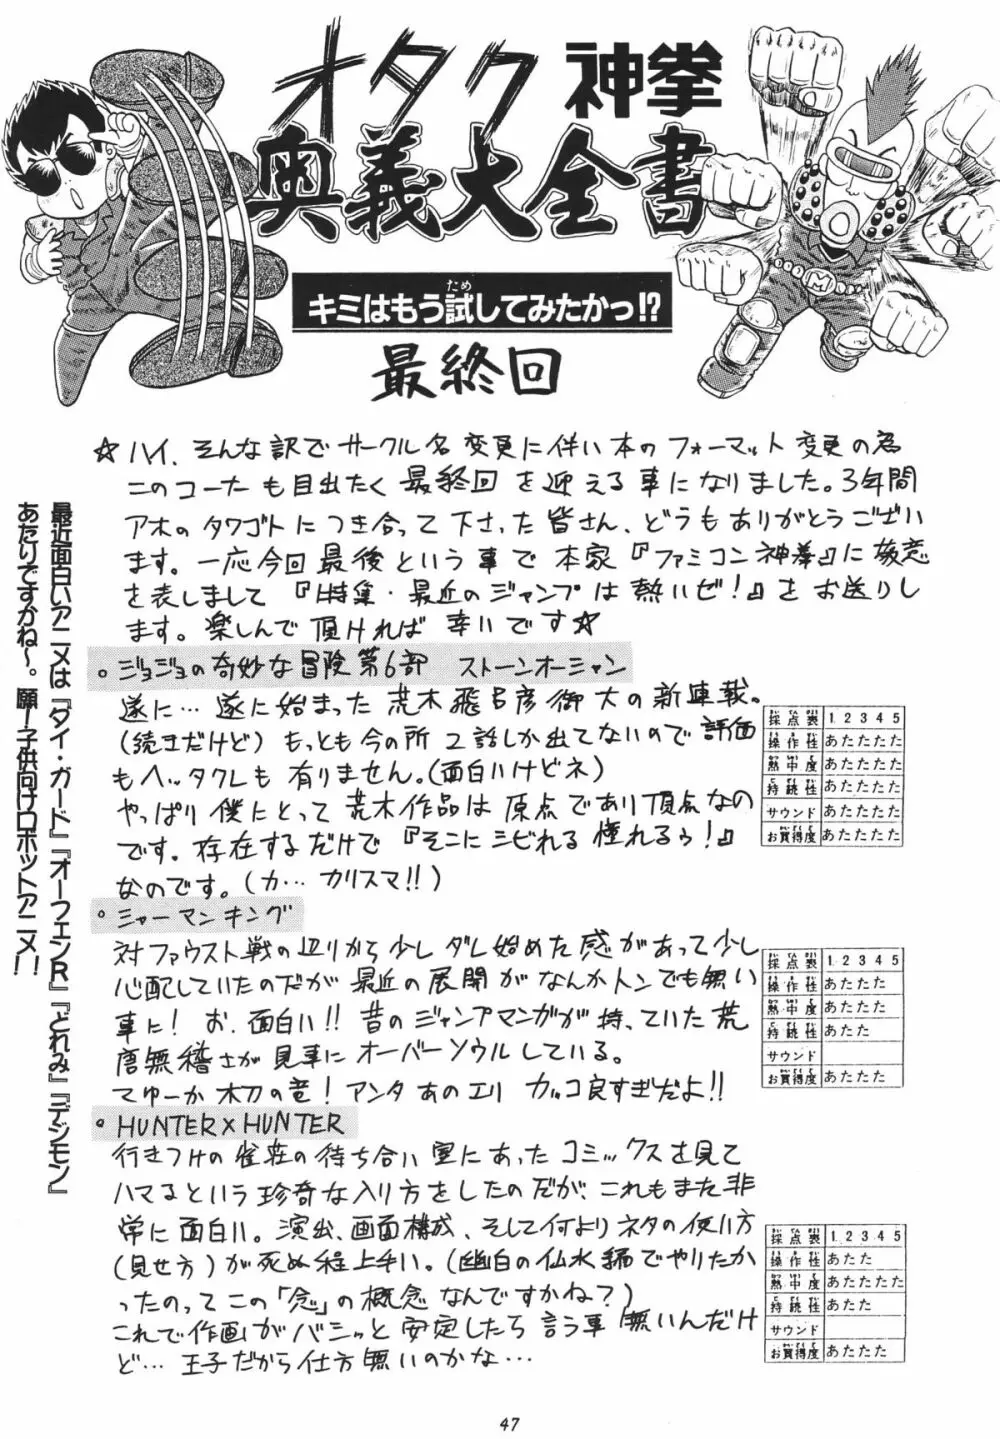 オタク神拳
奥義大全書
キミはもう試してみたかっ!?
ため
最終回
☆ハイ、そんな訳でサークル名変更に伴い本のフォーマット変更の為
このコーナーも目出たく最終回を迎える事になりました。3年間
アホのタワゴトにつき合って下さった皆さん、どうもありがとうござい
ます。一応今回最後という事で本家『ファミコン神拳』に敬意
を表しまして『特集・最近のジャンプは熱いぜ!』をお送りし
ます。楽しんで頂ければ幸いです☆
最近面白いアニメは『ダイ・ガード』『オーフェンR』『どれみ』『デジモン』
あたりですかね〜。願!子供向けロボットアニメ!!
◦ジョジョの奇妙な冒険第6部 ストーンオーシャン
遂に…遂に始まった荒木飛呂彦御大の新連載。
(続きだけど)もっとも今の所2話しか出てないので評価
もヘッタクレも有りません。(面白いけどネ)
やっぱり僕にとって荒木作品は原点であり頂点なの
です。存在するだけで『そこにシビれる憧れるぅ!』
なのです。(カ…カリスマ!!)
採点表 1 2 3 4 5
操作性 あたたたた
熱中度 あたたたた
持続性 あたたたた
サウンド あたたたた
お買得度 あたたたた
◦シャーマンキング
対ファウスト戦の辺りから少しダレ始めた感があって少し
心配していたのだが最近の展開がなんかトンでも無い
事に!お、面白い!!昔のジャンプマンガが持っていた荒
唐無稽さが見事にオーバーソウルしている。
てゆーか木刀の竜!アンタあのエリカッコ良すぎだよ!!
採点表 1 2 3 4 5
操作性 あたたた
熱中度 あたたた
持続性 あたた
サウンド
お買得度 あたたた
◦HUNTER×HUNTER
行きつけの雀荘の待ち合い室にあったコミックスを見て
ハマるという珍奇な入り方をしたのだが、これもまた非
常に面白い。演出、画面構成、そして何よりネタの使い方
(見せ方)が死ぬ程上手い。(幽白の仏水編でやりたか
ったのってこの「念」の概念なんですかね?)
これで作画がバシッと安定したら言う事無いんだけ
ど…王子だから仕方無いのかな…
採点表 1 2 3 4 5
操作性 あたた
熱中度 あたたたた
持続性 あたた
サウンド
お買得度 あたたた
47